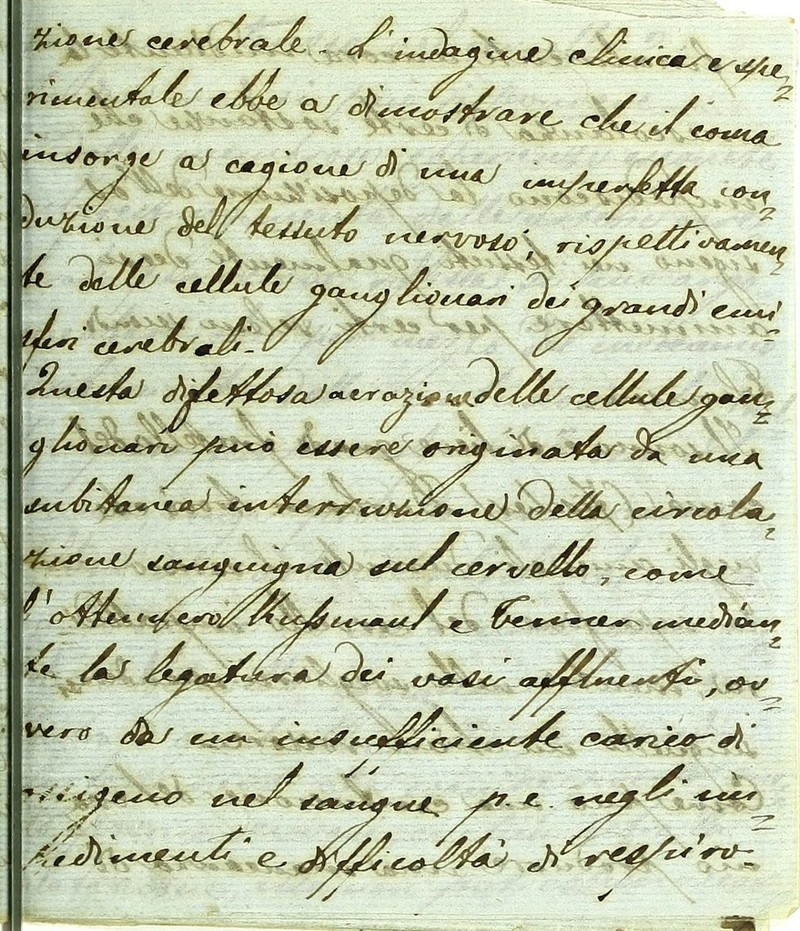 zione cerebrale. L'indagine clinica e spe=
rimentale ebbe a dimostrare che il coma
insorge a cagione di una imperfetta con=
duzione del tessuto nervoso, rispettivamen=
te delle cellule ganglionari dei grandi emi=
sferi cerebrali.
Questa difettosa aerazione delle cellule gan=
glionari può essere originata da una
subitanea interruzione della circola=
zione sanguigna sul cervello, come
l'ottennero Kußmaul e Tenner median=
te la legatura dei vasi affluenti, ov=
vero da un insufficiente carico di
ossigeno nel sangue p.e. negli im=
pedimenti e difficoltà di respiro-